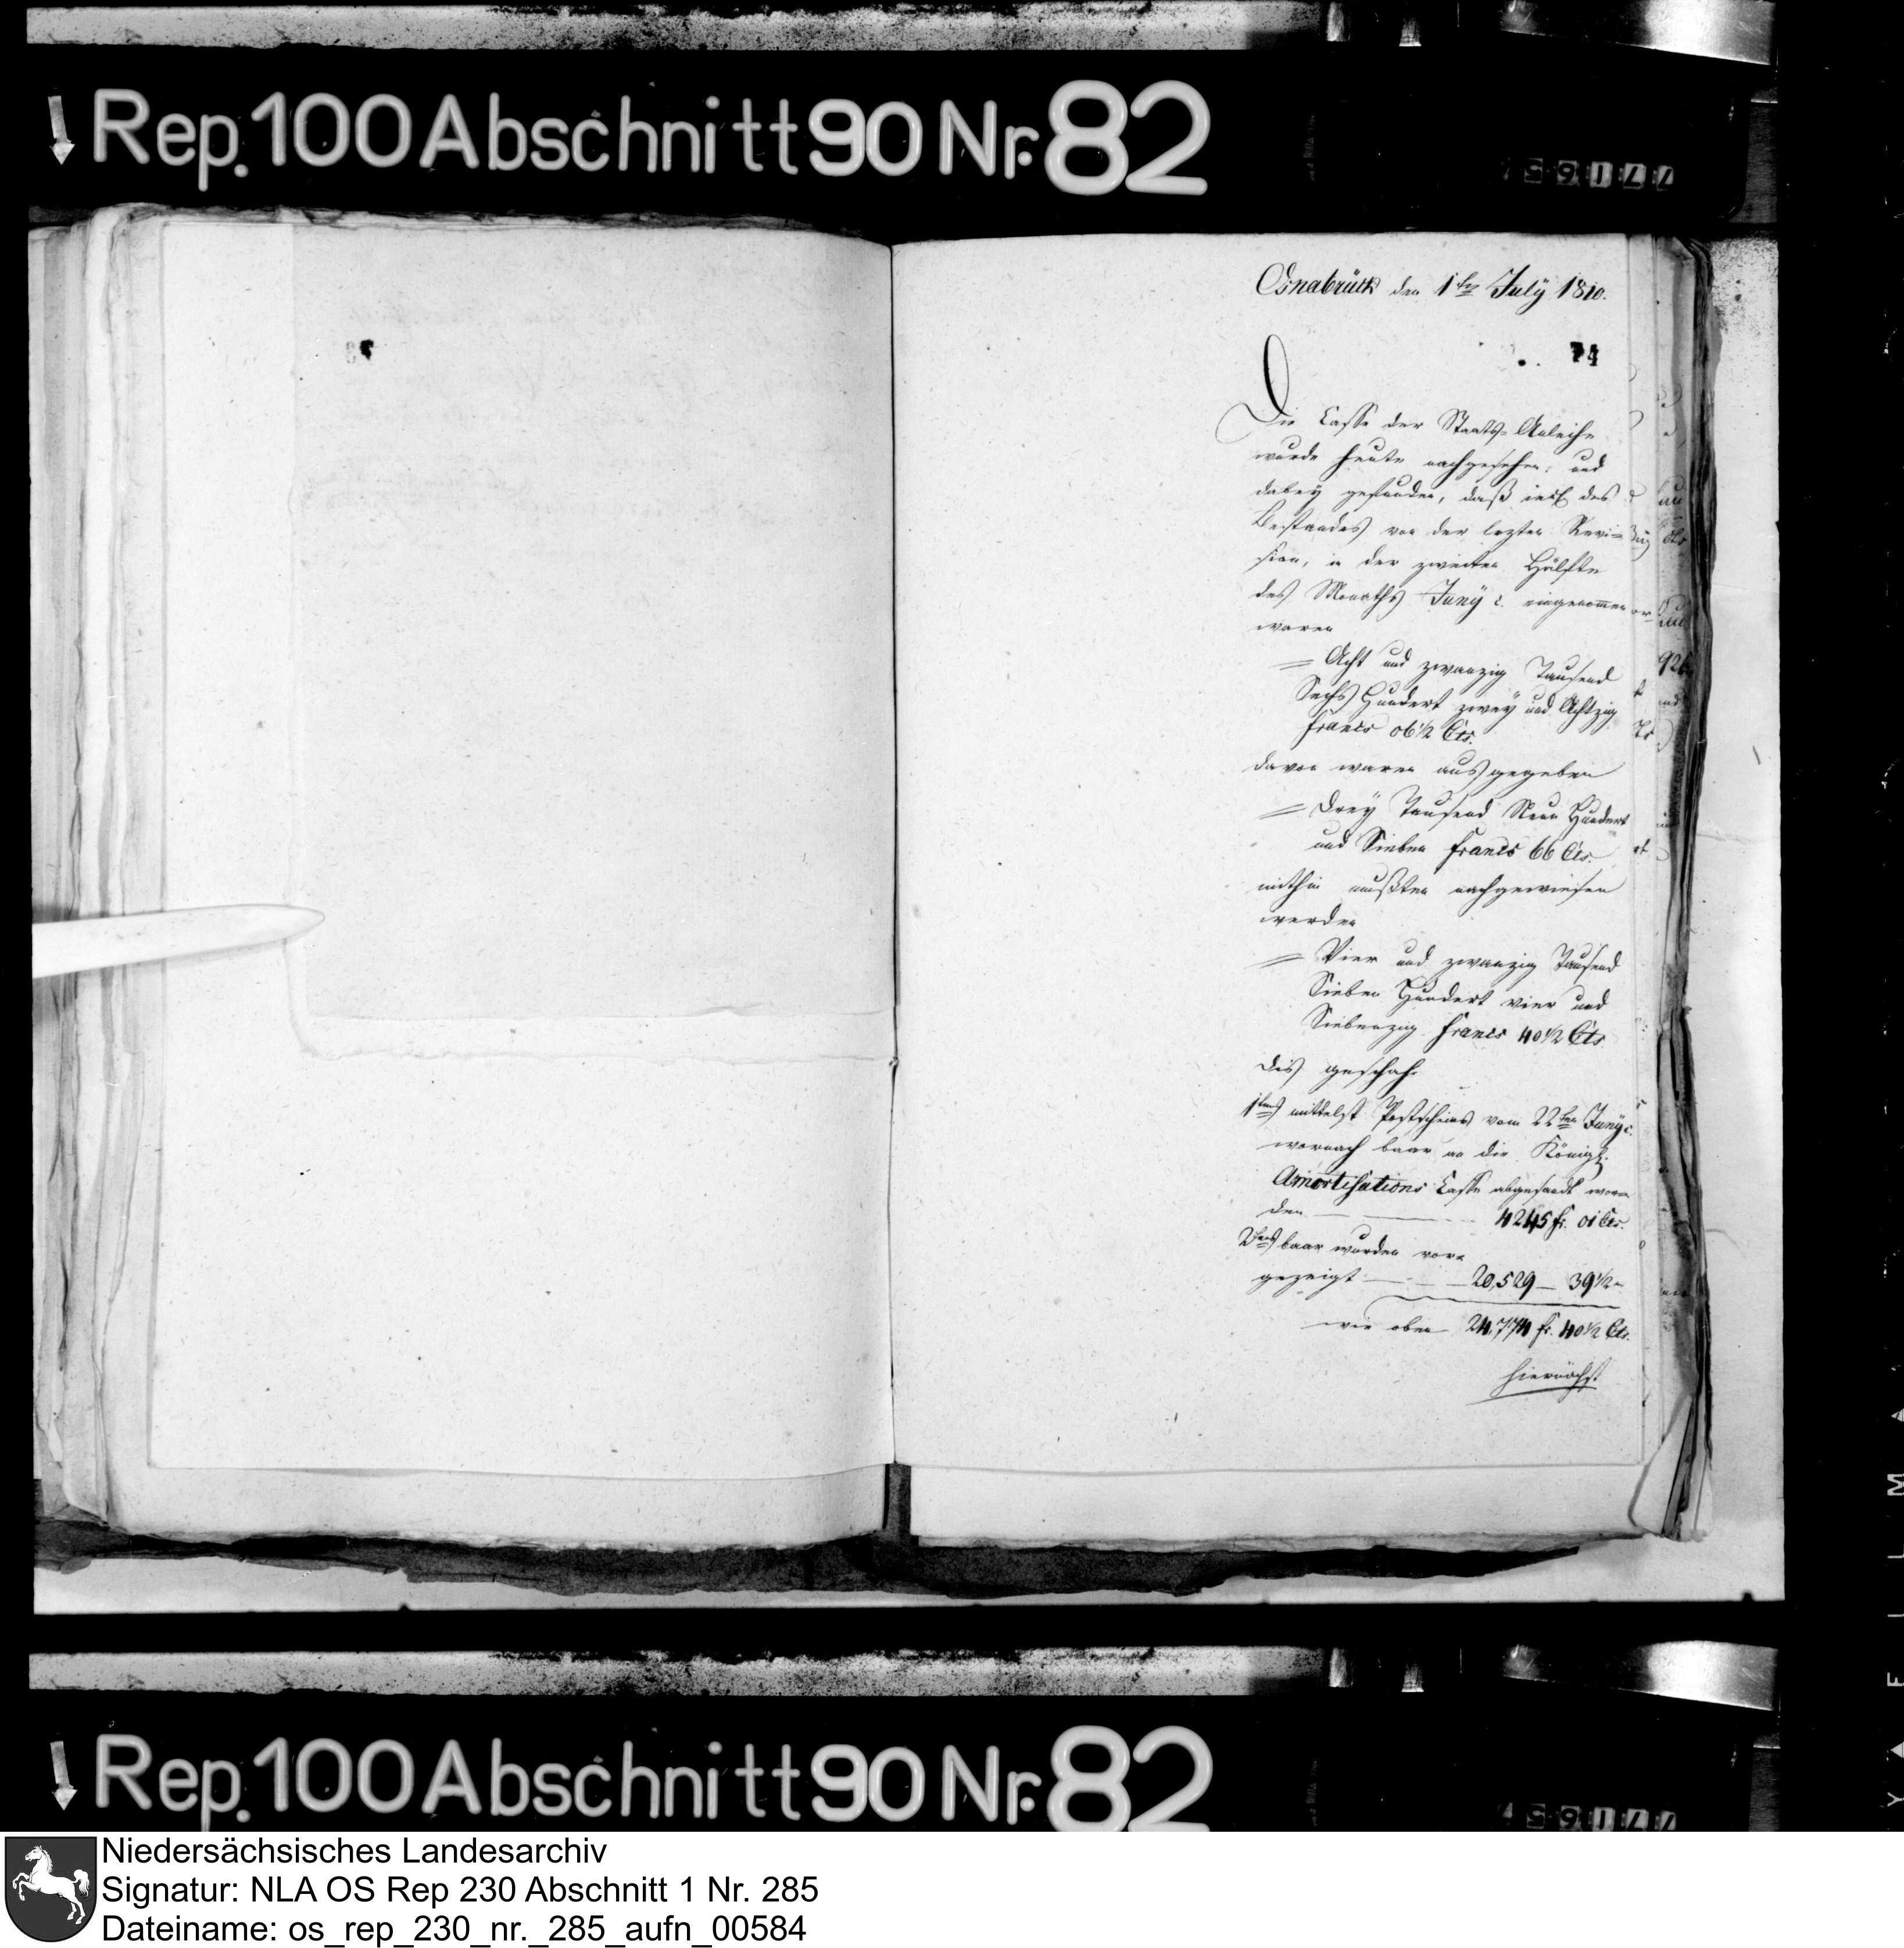 Rep. 100 Abschnitt 90 Nr. 82
Osnabrück den 1ten July 1810.
74
Die Casse der Staats-Anleihe
wurde heute nachgesehen; und
dabey gefunden, daß incl. des
Bestandes von der lezten Revi=
sion, in der zweiten Hälfte
des Monaths Juny c. eingenommen
waren
= Acht und zwanzig Tausend
Sechs Hundert zwey und Achtzig
francs 06 1/2 Cts.
davon waren ausgegeben
= Drey Tausend Neun Hundert
und Sieben francs 66 Cts.
mithin mußten nachgewiesen
werden
= Vier und zwanzig Tausend
Sieben Hundert vier und
Siebenzig francs 40 1/2 Cts
Dis geschah
1tens mittelst Postscheins vom 22ten Juny c.
wornach baar an die Königl.
Amortisations Casse abgesandt wor=
den — — 4245 fr. 01 Cts.
2tens baar wurden vor=
gezeigt — — 20,529 — 39 1/2 -
wie oben 24,774 fr. 40 1/2 Cts.
hiernächst
73
Rep. 100 Abschnitt 90 Nr. 82
Niedersächsisches Landesarchiv
Signatur: NLA OS Rep 230 Abschnitt 1 Nr. 285
Dateiname: os_rep_230_nr._285_aufn_00584